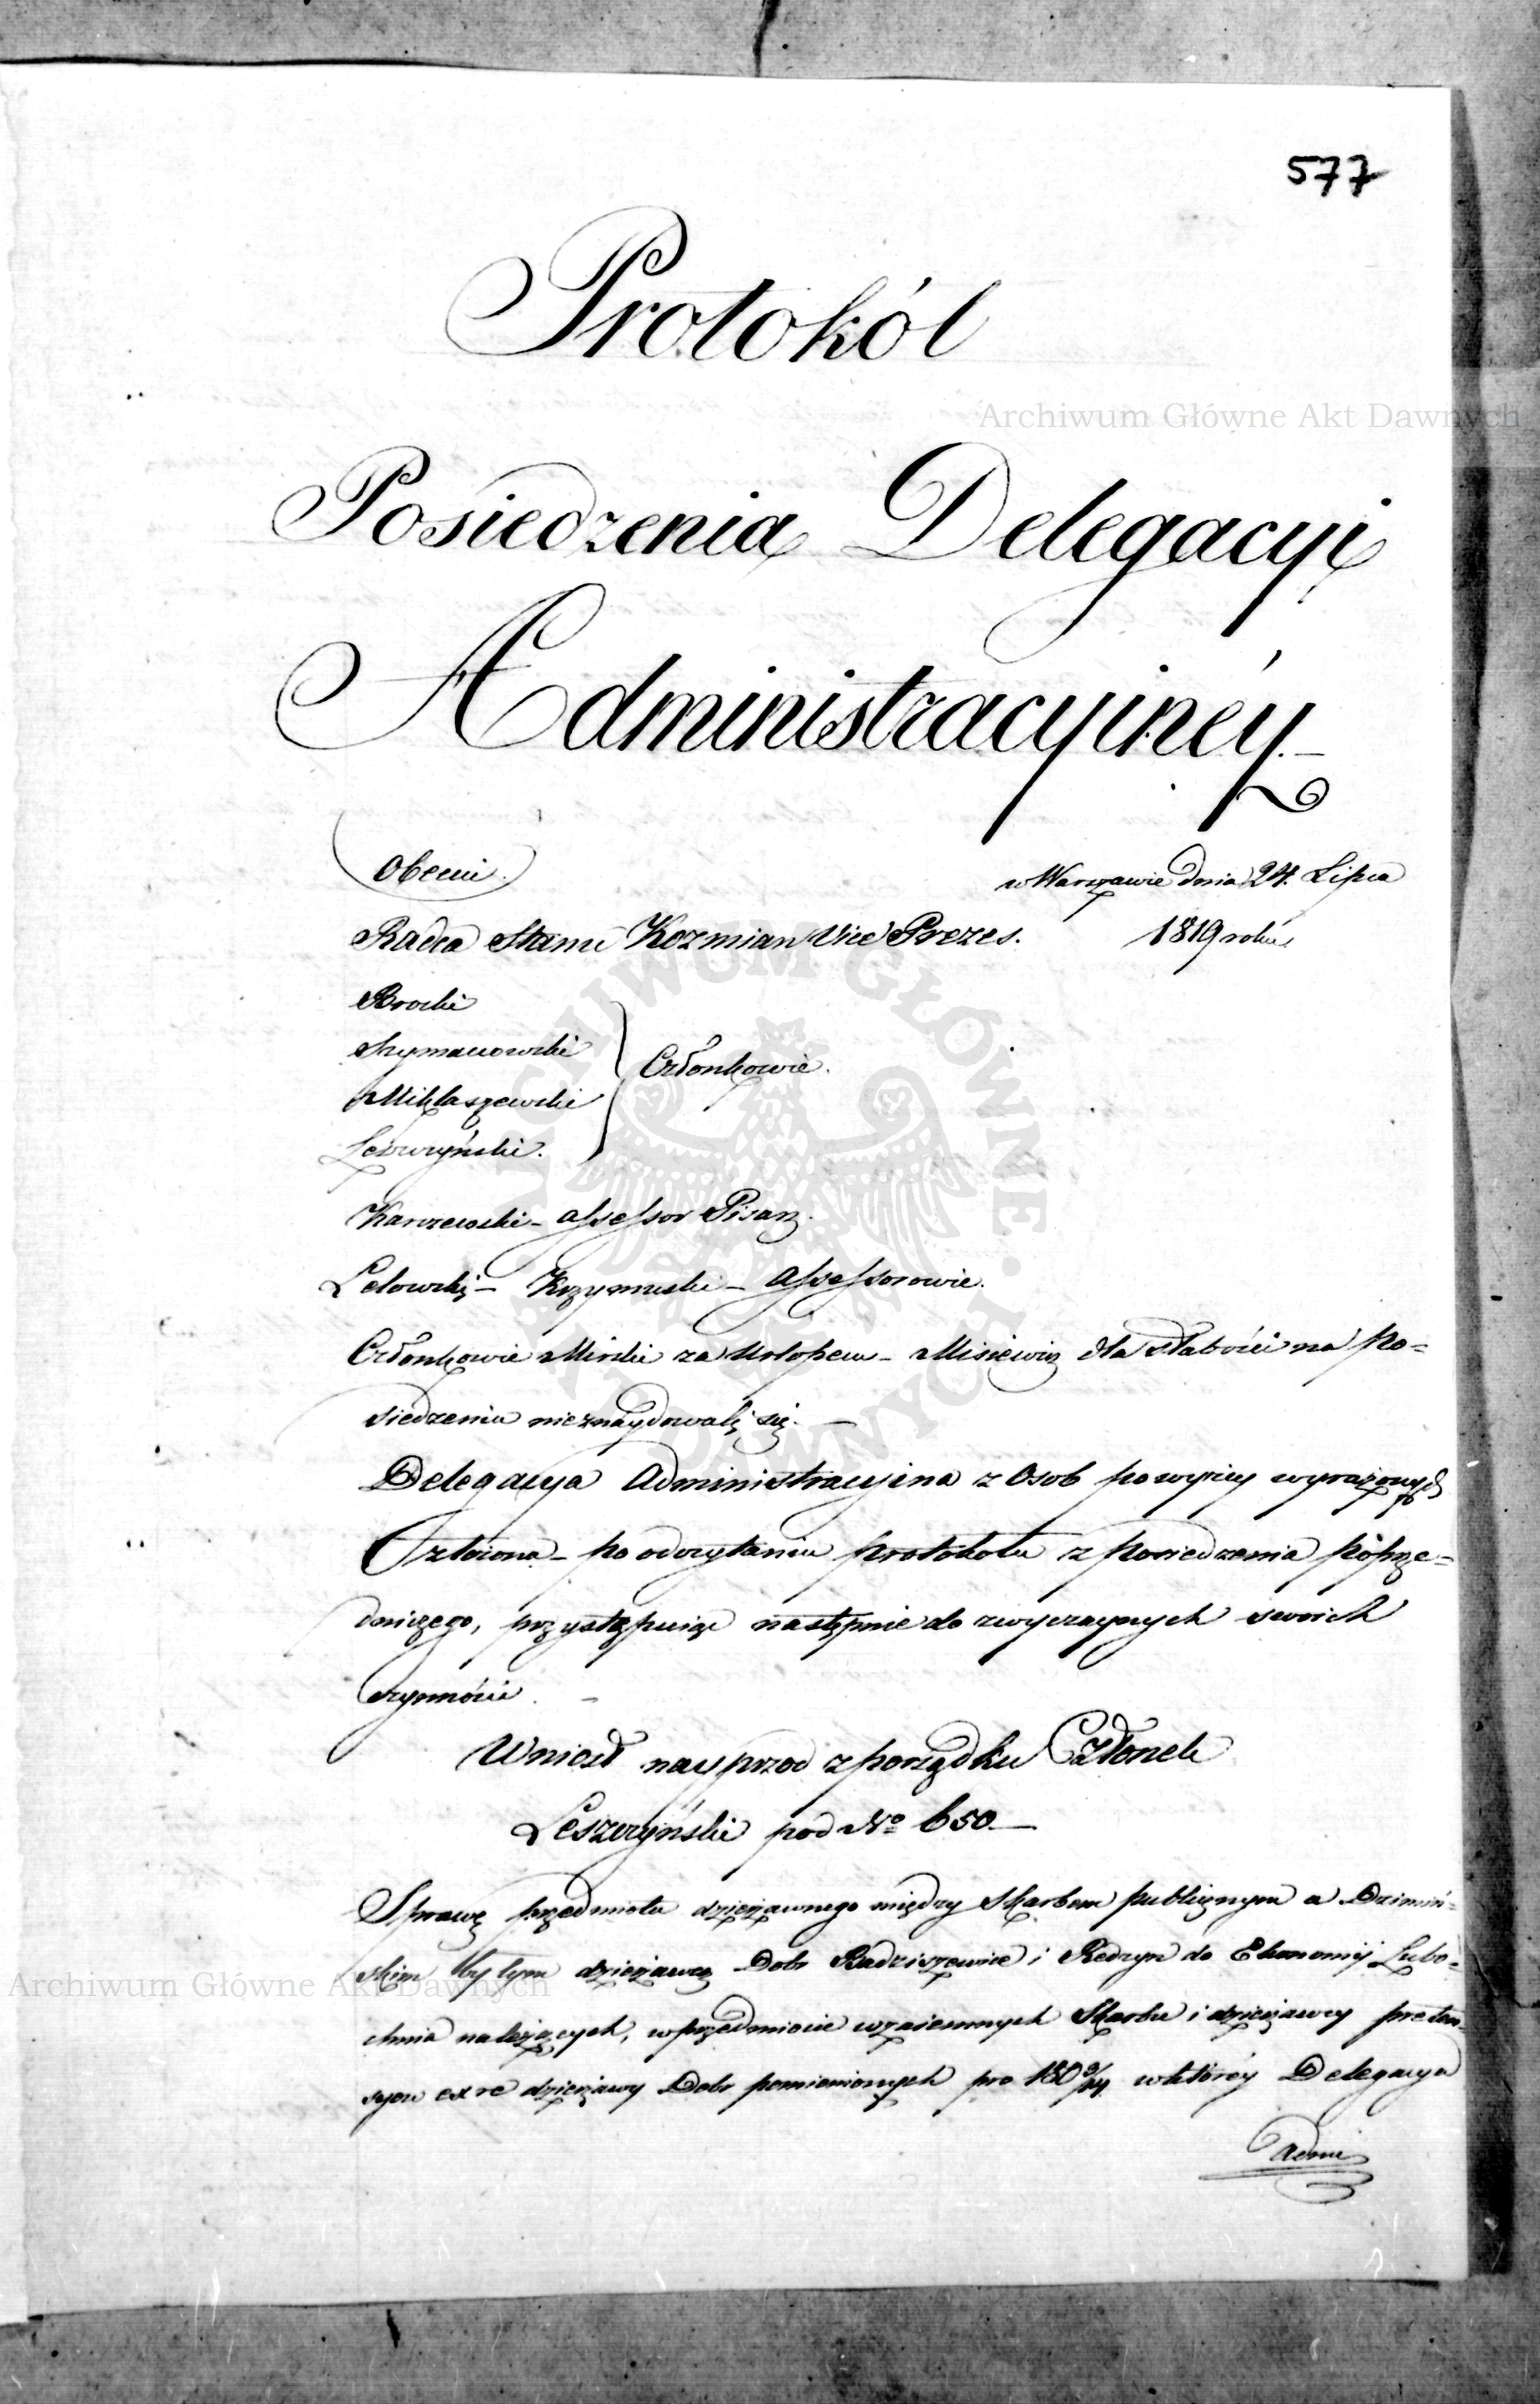 577
Protokół
Posiedzenia Delegacyi
Administracyiney
Obecni.
w Warszawie dnia 24. Lipca
1819 roku
Radca Stanu Kozmian Vice Prezes.
Brocki
Szymanowski
Miklaszewski
Leszczyński.
Członkowie.
Karczewski – Assessor Pisarz.
Lelowski – Krzymuski – Assessorowie.
Członkowie Mirski za Urlopem – Misiewicz dla słabości na Po=
siedzeniu nieznaydowali się. –
Delegacya Administracyina z Osob powyżey wyrażonych
złożona – po odczytaniu protokołu z posiedzenia poprze=
dniczego, przystępuiąc następnie do zwyczaynych swoich
czynności. –
Wniosł nayprzod z porządku Członek
Leszczyński pod No 650. –
Sprawę przedmiotu dzierżawnego między Skarbem publicznym a Dzimiń=
skim byłym dzierżawcą Dobr Radziszewice i Redzyn do Ekonomij Lubo=
chnia należących, w przedmiocie wzaiemnych Skarbu i dzierżawcy preten=
syow ex re dzierżawy Dobr pomienionych pro w ktorey Delegacya
Admi
Archiwum Główne Akt Dawnych
Archiwum Główne Akt Dawnych
ARCHIWUM GŁÓWNE AKT DAWNYCH